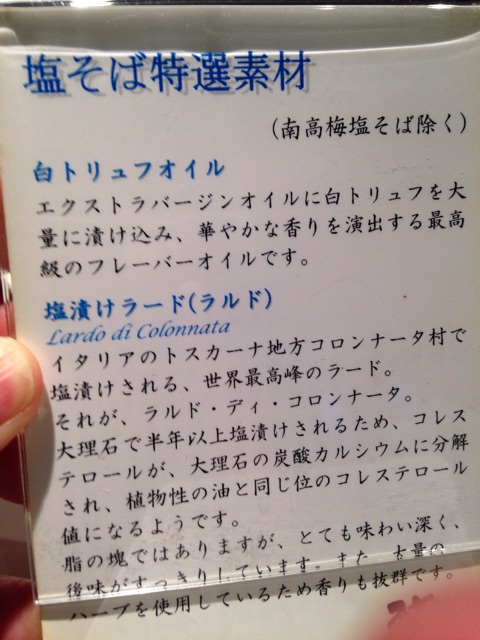 塩そば特選素材
(南高梅塩そば除く)
白トリュフオイル
エクストラバージンオイルに白トリュフを大
量に漬け込み、華やかな香りを演出する最高
級のフレーバーオイルです。
塩漬けラード(ラルド)
Lardo di Colonnata
イタリアのトスカーナ地方コロンナータ村で
塩漬けされる、世界最高峰のラード。
それが、ラルド・ディ・コロンナータ。
大理石で半年以上塩漬けされるため、コレス
テロールが、大理石の炭酸カルシウムに分解
され、植物性の油と同じ位のコレステロール
値になるようです。
脂の塊ではありますが、とても味わい深く、
後味がすっきりしています。また、大量の
ハーブを使用しているため香りも抜群です。